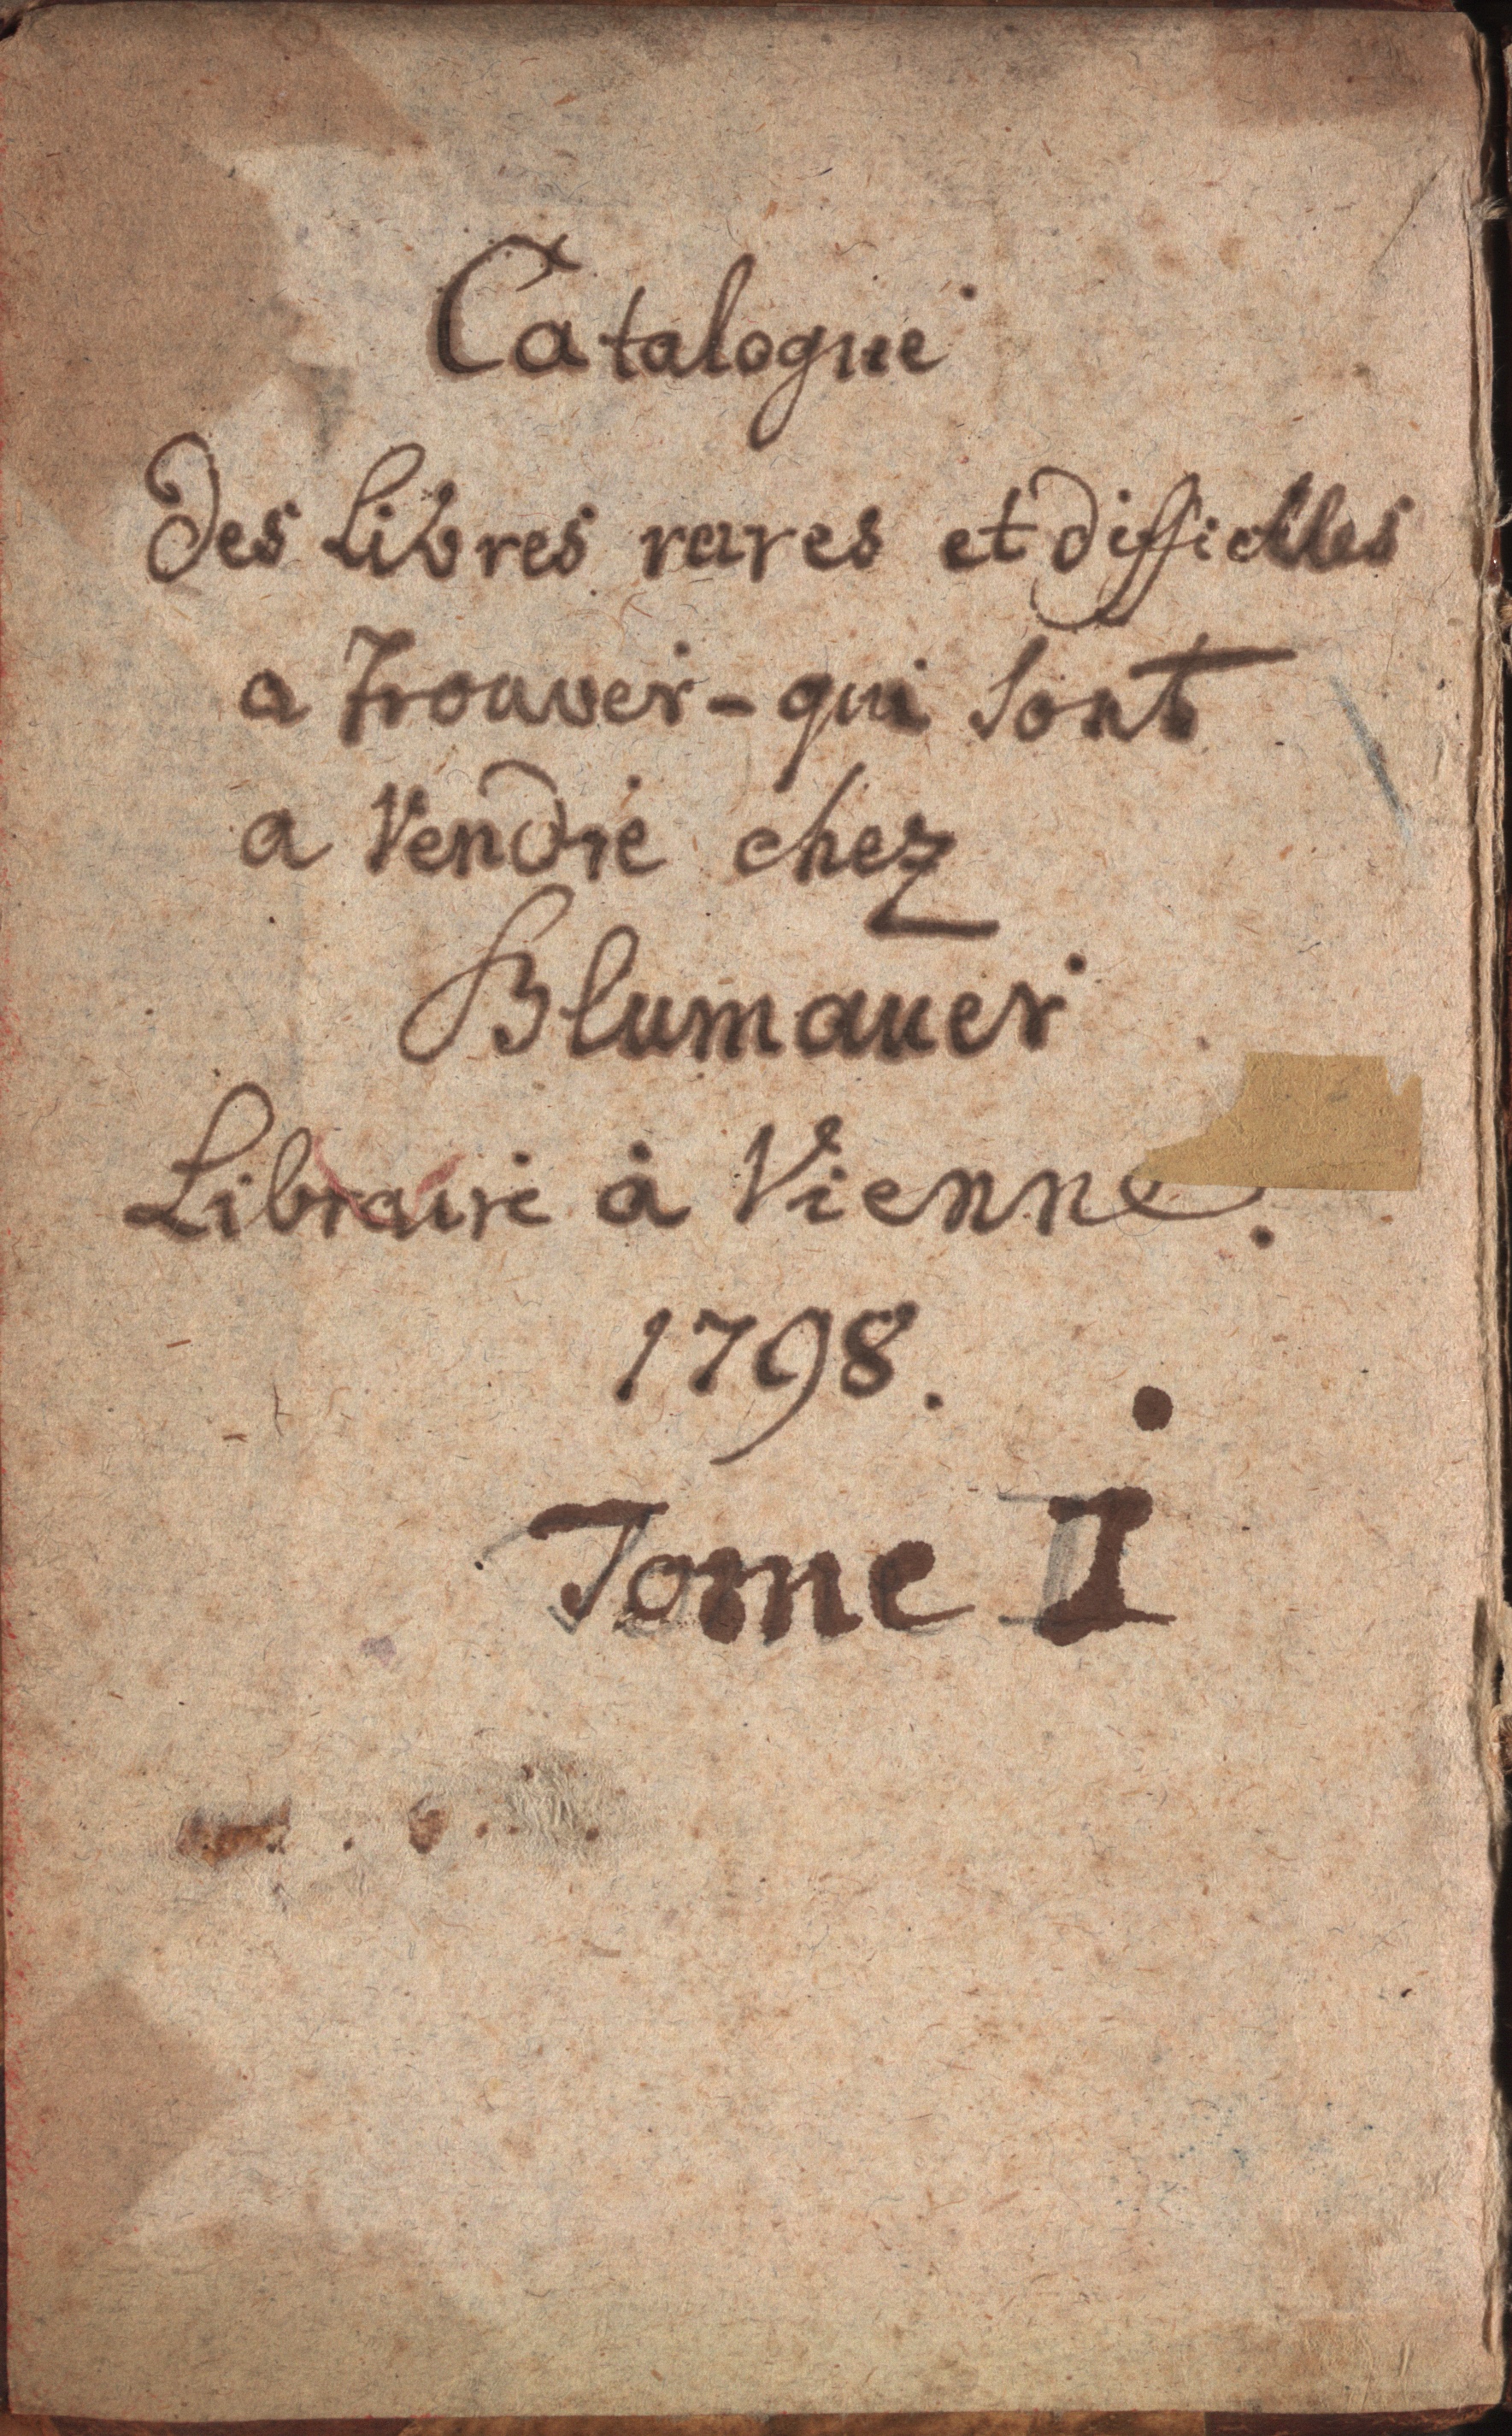 Catalogue
des Libres rares et difficiles
a trouver - qui sont
a Vendre chez
Blumauer
Libraire à Vienne.
1798.
Tome I